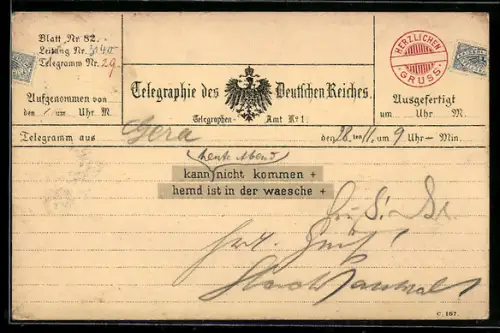 Blatt Nr. 82.
Leitung Nr. 3140
Telegramm Nr. 29
Aufgenommen von
den / um Uhr M.
Telegraphie des Deutschen Reiches.
Telegraphen- Amt № 1.
HERZLICHEN
GRUSS
Ausgefertigt
um Uhr M.
Telegramm aus Gera den 28. ten 11. um 9 Uhr — Min.
heute Abend
kann nicht kommen +
hemd ist in der waesche +
C. 167.